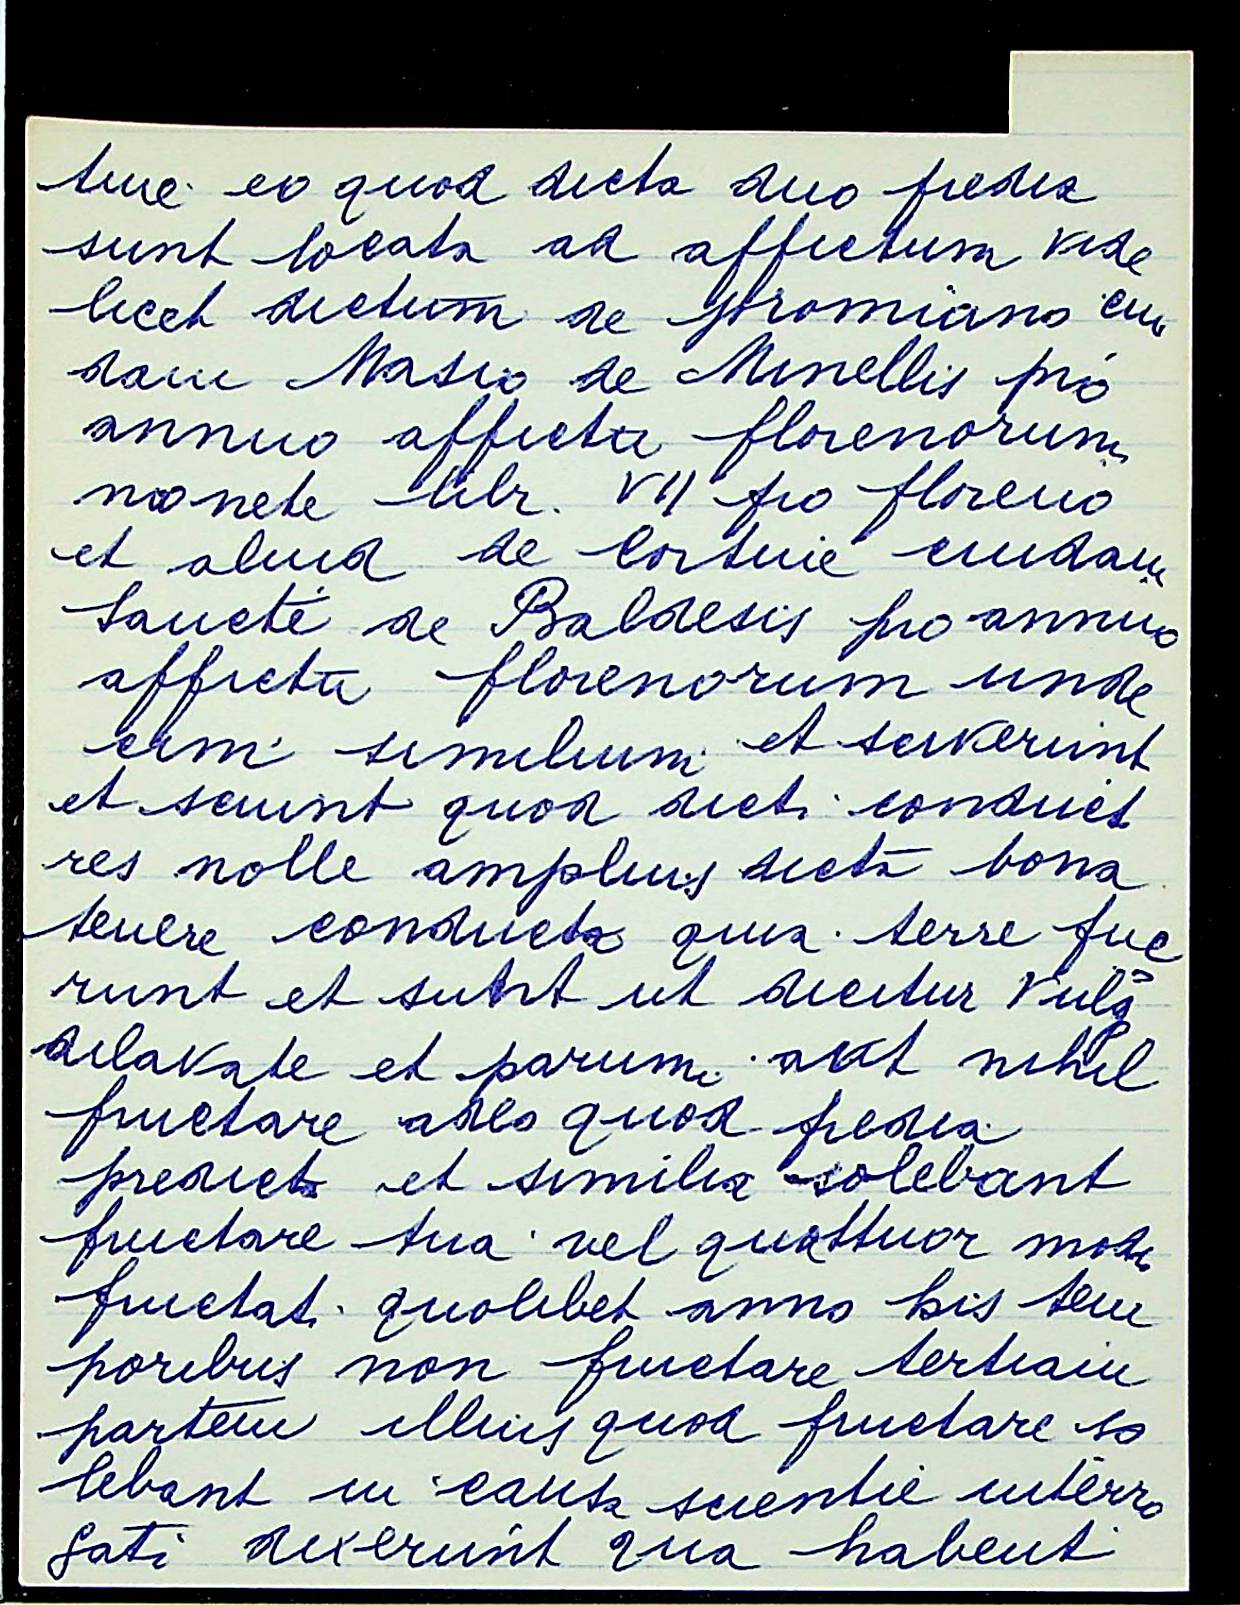 ture eo quod dicta duo predia
sunt locata ad affictum vide
licet dictum de Giromiano cui
dam Masio de Minellis pro
annuo afficta florenorum
monete libr. VII pro floreno
et aliud de Cortine cuidam
Sancte de Baldesis pro annuo
afficta florenorum unde
cim similium et sciverunt
et sciunt quod dicti conduct
res nolle amplius dicta bona
tenere conducta quia terre fue
runt et sunt ut dicitur vulg
dilavate et parum aut nihil
fructare adeo quod predia
predicta et similia solebant
fructare tria vel quattuor modi
fructat. quolibet anno his tem
poribus non fructare tertiam
partem illius quod fructare so
lebant in causa scientie interro
gati dixerunt qua habent